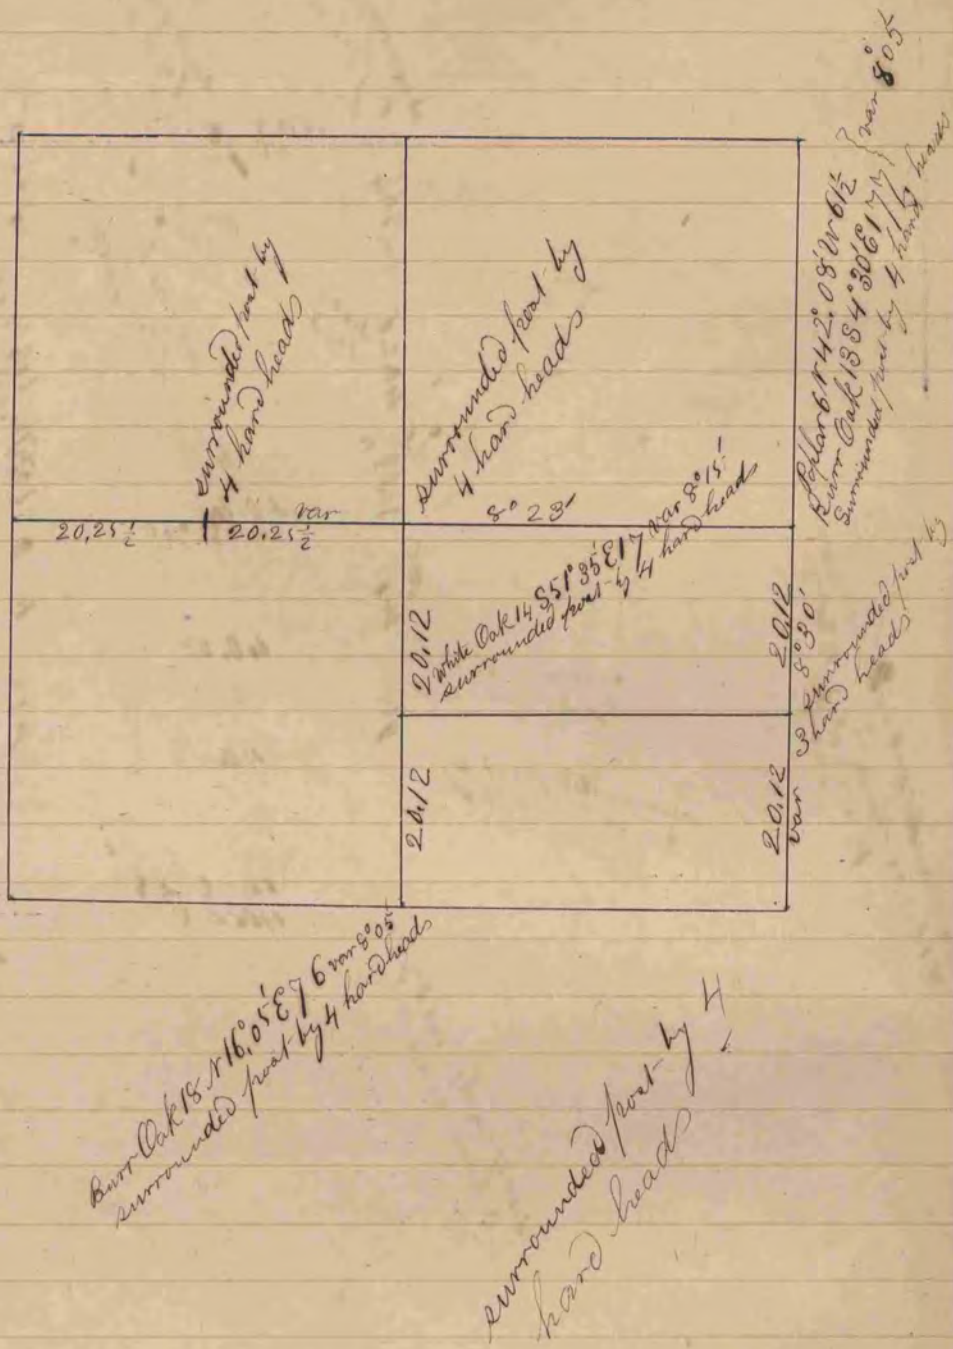 surrounded post by
4 hard heads
surrounded post by
4 hard heads
Poplar 6 N 42° 08' W 61½
Burr Oak 13 S 4° 30' E 177 } var 8° 05'
Surrounded post by 4 hard heads
20,25½
20,25½
var
8° 23'
20,12
White Oak 14 S 51° 35' E 17 var 8° 15'
surrounded post by 4 hard heads
20,12
8° 30'
surrounded post by
3 hard heads
20,12
20,12
var
Burr Oak 18 N 16° 05' E 76 var 8° 05'
surrounded post by 4 hard heads
surrounded post by 4
hard heads